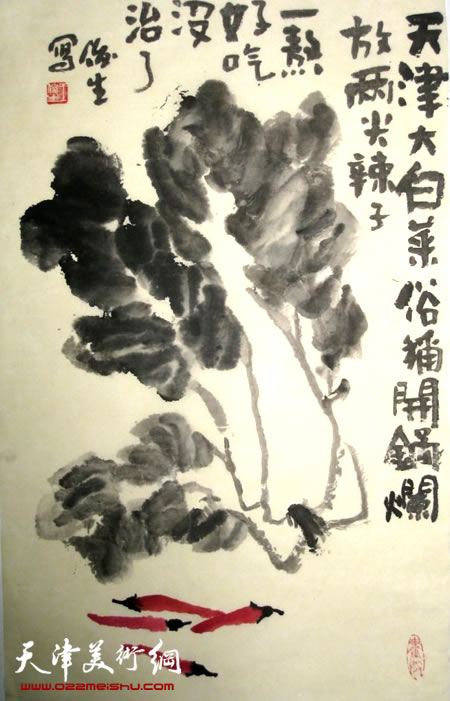 天津大白菜俗稱開鍋爛
放两尖辣子
一熬
好吃
没
治了
俊生
寫
天津美術網
www.022meishu.com